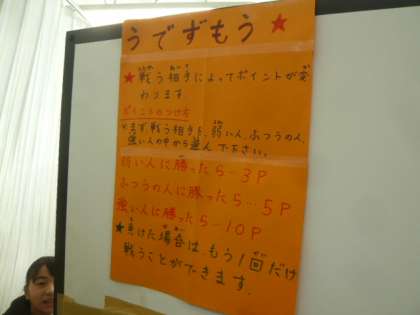 うでずもう ★
★戦う相手によってポイントが変
わります。
ポイントのつけ方
※まず、戦う相手を、弱い人、ふつうの人、
強い人の中から選んで下さい。
弱い人に勝ったら…3P
ふつうの人に勝ったら…5P
強い人に勝ったら…10P
★負けた場合は、もう1回だけ
戦うことができます。